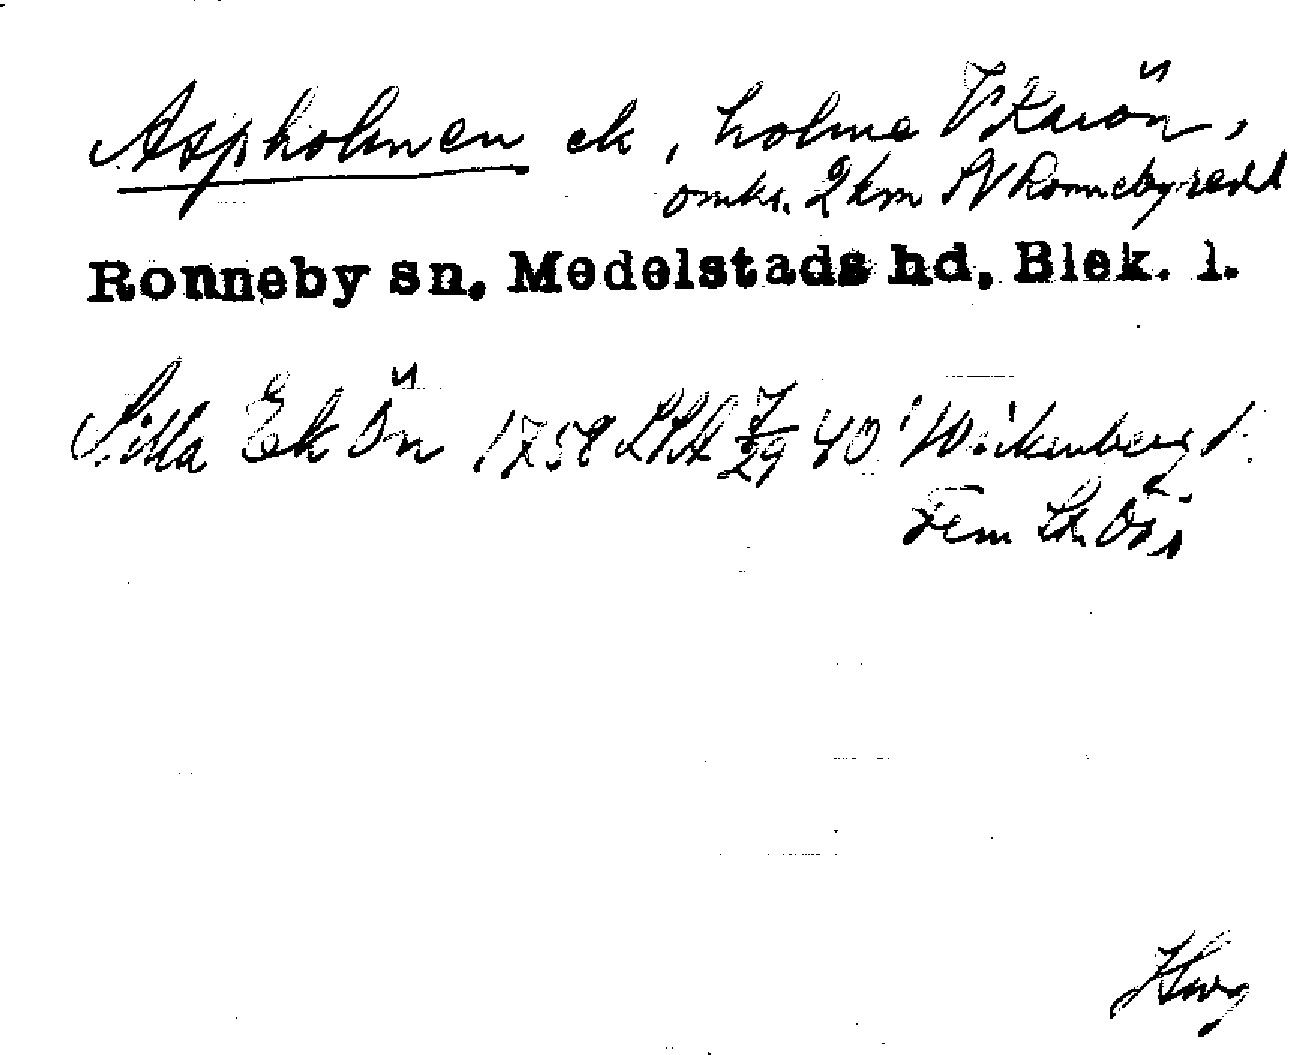 Aspholmen ek, holme V Karön,
omkr. 2 km SV Ronnebyredd
Ronneby sn, Medelstads hd, Blek. l.
Lilla Ek Ön 1758 LSA 7/29 40
Fem St. Öar